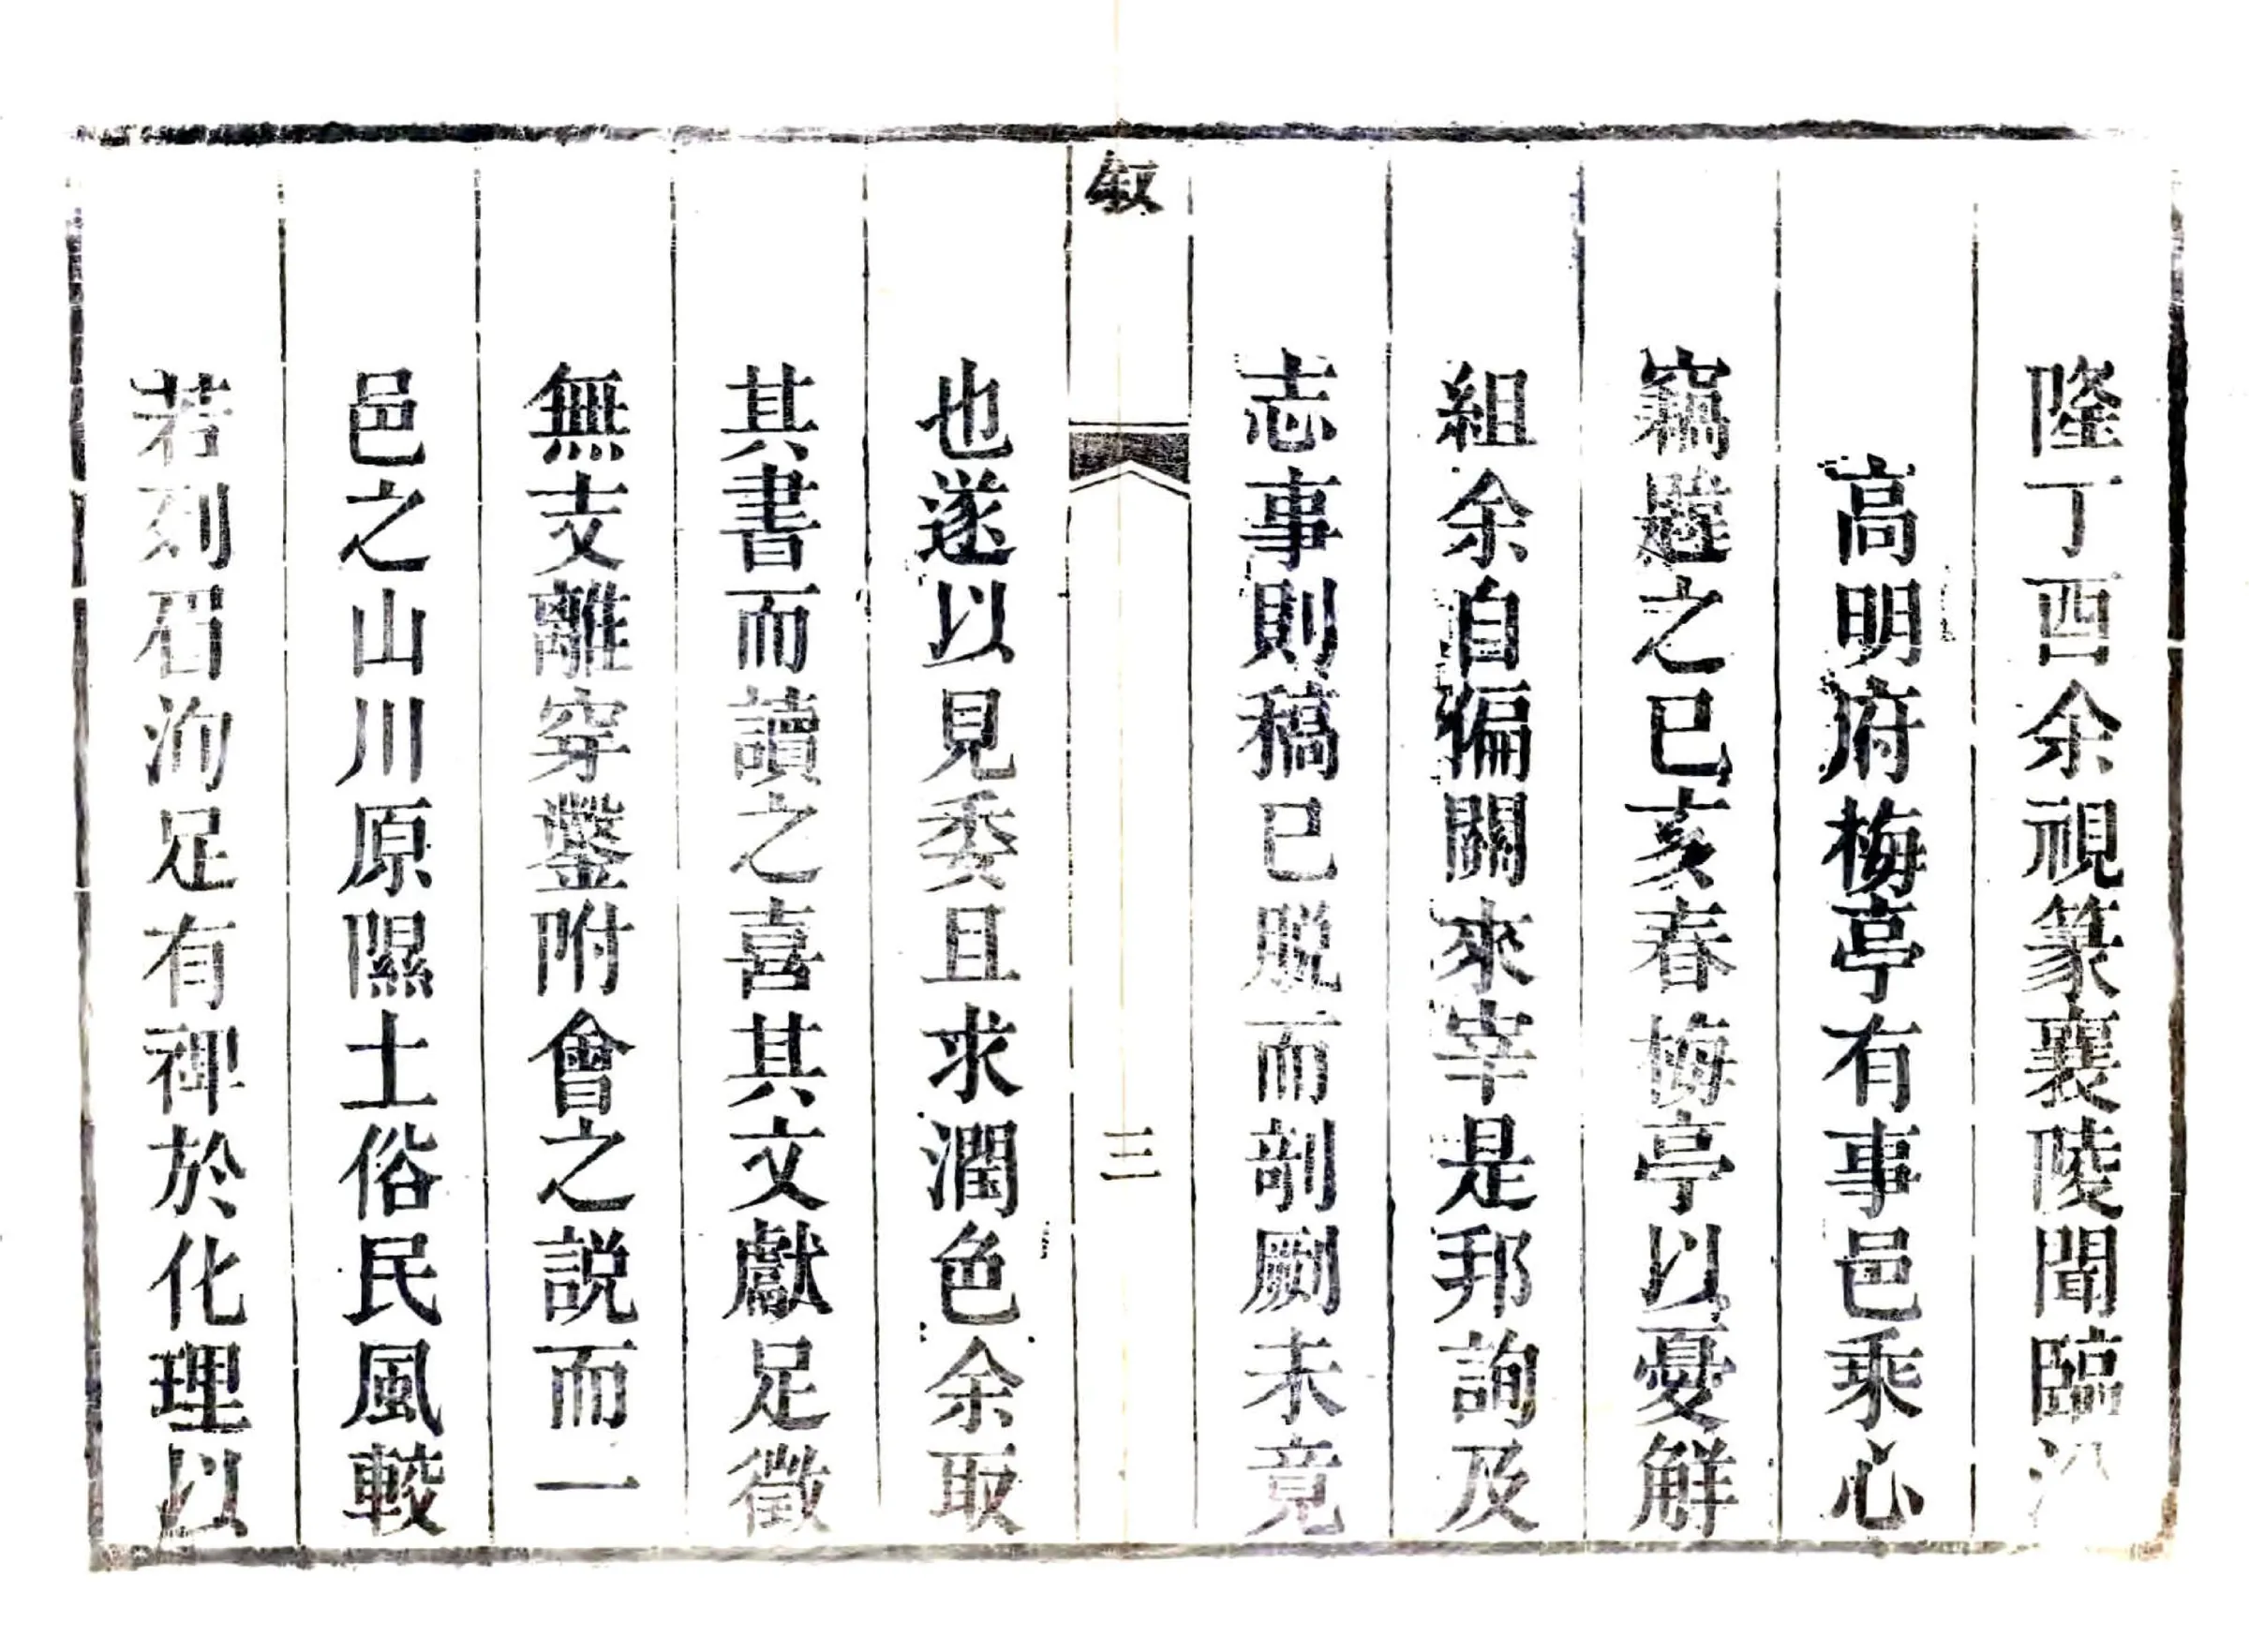 隆丁酉余視篆襄陵聞臨汾
高明府梅亭有事邑乘心
竊韙之已亥春梅亭以憂解
組余自偏關來宰是邦詢及
志事則稿已脱而剞劂未竟
叙
三
也遂以見委且求潤色余取
其書而讀之喜其文獻足徵
無支離穿鑿附會之説而一
邑之山川原隰土俗民風較
若列眉洵足有裨於化理以